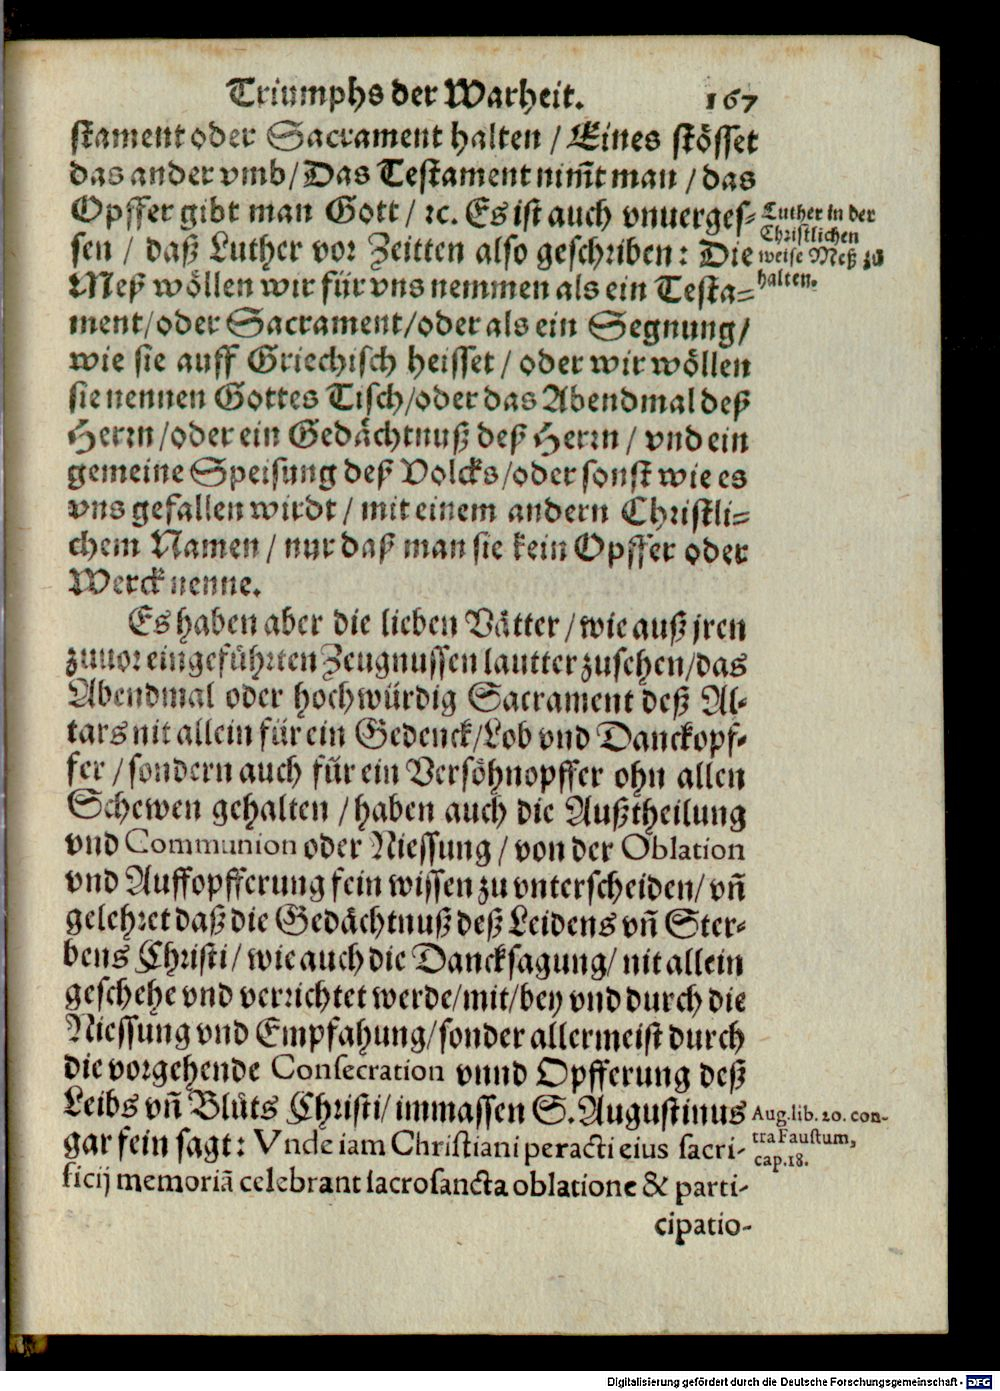 Triumphs der Warheit. 167
stament oder Sacrament halten / Eines stösset
das ander vmb / Das Testament nim̃t man / das
Opffer gibt man Gott / ꝛc. Es ist auch vnuerges-
sen / daß Luther vor Zeitten also geschriben: Die
Meß wöllen wir für vns nemmen als ein Testa-
ment / oder Sacrament / oder als ein Segnung /
wie sie auff Griechisch heisset / oder wir wöllen
sie nennen Gottes Tisch / oder das Abendmal deß
Herrn / oder ein Gedächtnuß deß Herrn / vnd ein
gemeine Speisung deß Volcks / oder sonst wie es
vns gefallen wirdt / mit einem andern Christli-
chem Namen / nur daß man sie kein Opffer oder
Werck nenne.
Luther in der
Christlichen
weise Meß zů
halten.
Es haben aber die lieben Vätter / wie auß jren
zuuor eingeführten Zeugnussen lautter zusehen / das
Abendmal oder hochwürdig Sacrament deß Al-
tars nit allein für ein Gedenck / Lob vnd Danckopf-
fer / sondern auch für ein Versöhnopffer ohn allen
Schewen gehalten / haben auch die Außtheilung
vnd Communion oder Niessung / von der Oblation
vnd Auffopfferung fein wissen zu vnterscheiden / vñ
gelehret daß die Gedächtnuß deß Leidens vñ Ster-
bens Christi / wie auch die Dancksagung / nit allein
geschehe vnd verrichtet werde / mit / bey vnd durch die
Niessung vnd Empfahung / sonder allermeist durch
die vorgehende Consecration vnnd Opfferung deß
Leibs vñ Blůts Christi / immassen S. Augustinus
gar fein sagt: Vnde iam Christiani peracti eius sacri-
ficij memoriã celebrant sacrosancta oblatione & parti-
Aug. lib. 20. con-
tra Faustum,
cap. 18.
cipatio-
Digitalisierung gefördert durch die Deutsche Forschungsgemeinschaft - DFG